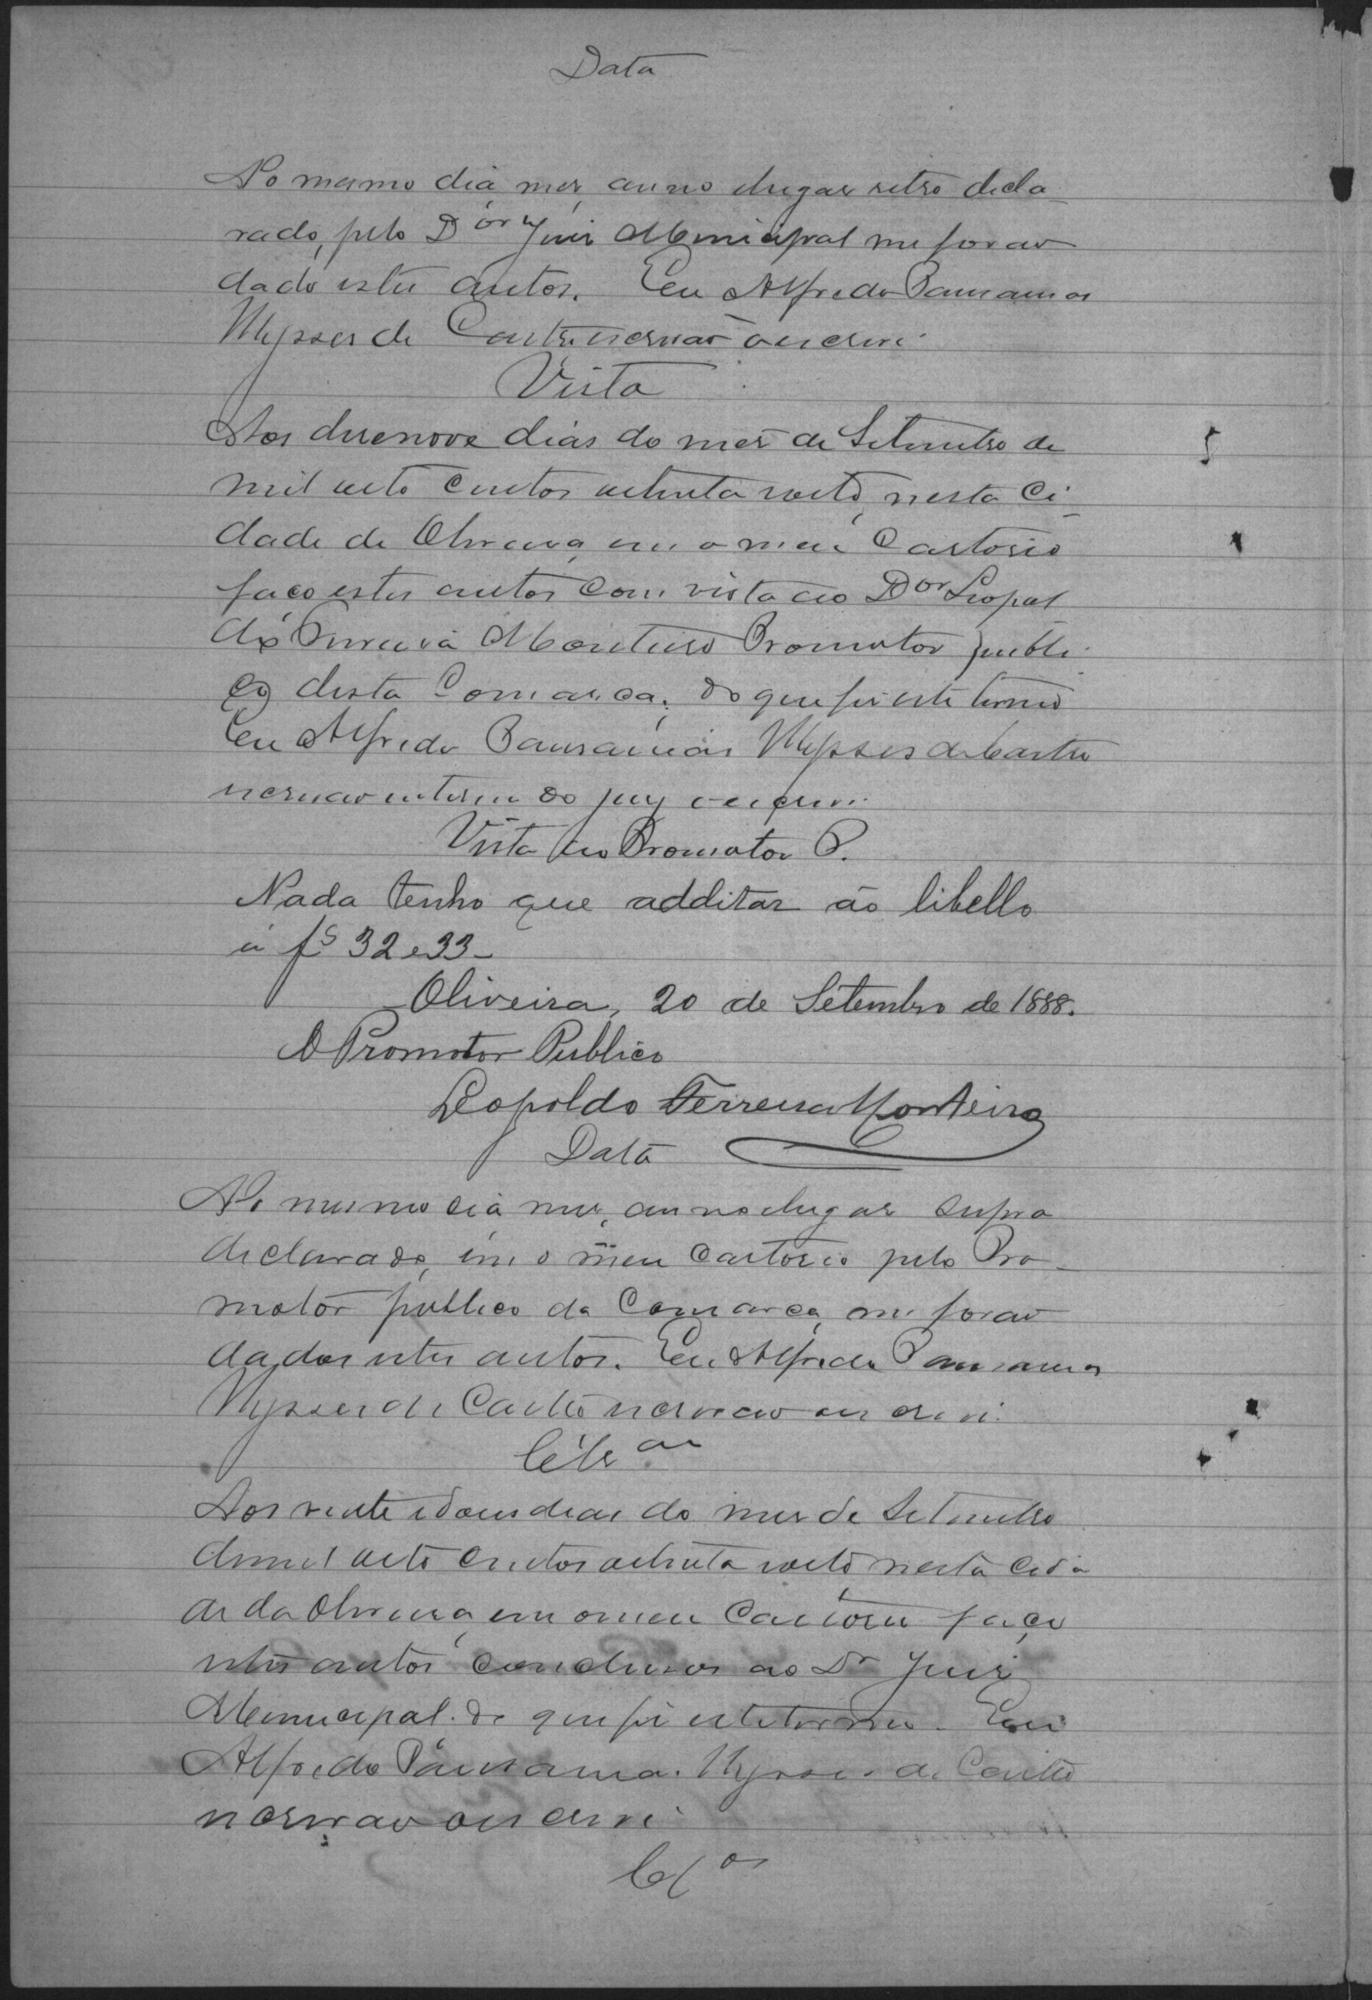 Data
No mesmo dia, mez, anno e lugar retro decla-
rado, pelo Dor Juiz Municipal me forão
dado estes autos. Eu Alfredo Pausanias
Ulysses de Castro escrivão o escrevi.
Vista
Aos desenove dias do mez de Setembro de
mil oito centos oitenta e oito, nesta Ci-
dade de Oliveira, em o meu Cartorio
faço estes autos com vista ao Dor Leopol
do Ferreira Monteiro Promotor publi-
co desta Comarca; do que fiz este termo
Eu Alfredo Pausanias Ulysses de Castro
escrivão interino do jury o escrevi.
Vista ao Promotor P.
Nada tenho que additar ao libello
á fs 32 e 33-
Oliveira, 20 de Setembro de 1888.
O Promotor Publico
Leopoldo Ferreira Monteiro
Data
No mesmo dia, mez, anno e lugar supra
declarado, em o meu Cartorio pelo Pro-
motor publico da Comarca, me forão
dados estes autos. Eu Alfredo Pausanias
Ulysses de Castro escrivão o escrevi.
Aos vinte e dous dias do mez de Setembro
de mil oito centos oitenta e oito nesta cida
de da Oliveira, em o meu Cartorio faço
estes autos conclusos ao Dr Juiz
Municipal. do que fiz este termo. Eu
Alfredo Pausanias Ulysses de Castro
escrivão o escrevi.
Clos